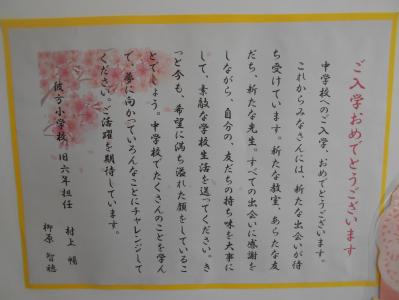 ご入学おめでとうございます
中学校へのご入学、おめでとうございます。
これからみなさんには、新たな出会いが待
ち受けています。新たな教室、あらたな友
だち、新たな先生。すべての出会いに感謝を
しながら、自分の、友だちの持ち味を大事に
して、素敵な学校生活を送ってください。き
っと今も、希望に満ち溢れた顔をしているこ
とでしょう。中学校でたくさんのことを学ん
で、夢に向かっていろんなことにチャレンジして
ください。ご活躍を期待しています。
彼方小学校 旧六年担任 村上 暢
柳原 智穂